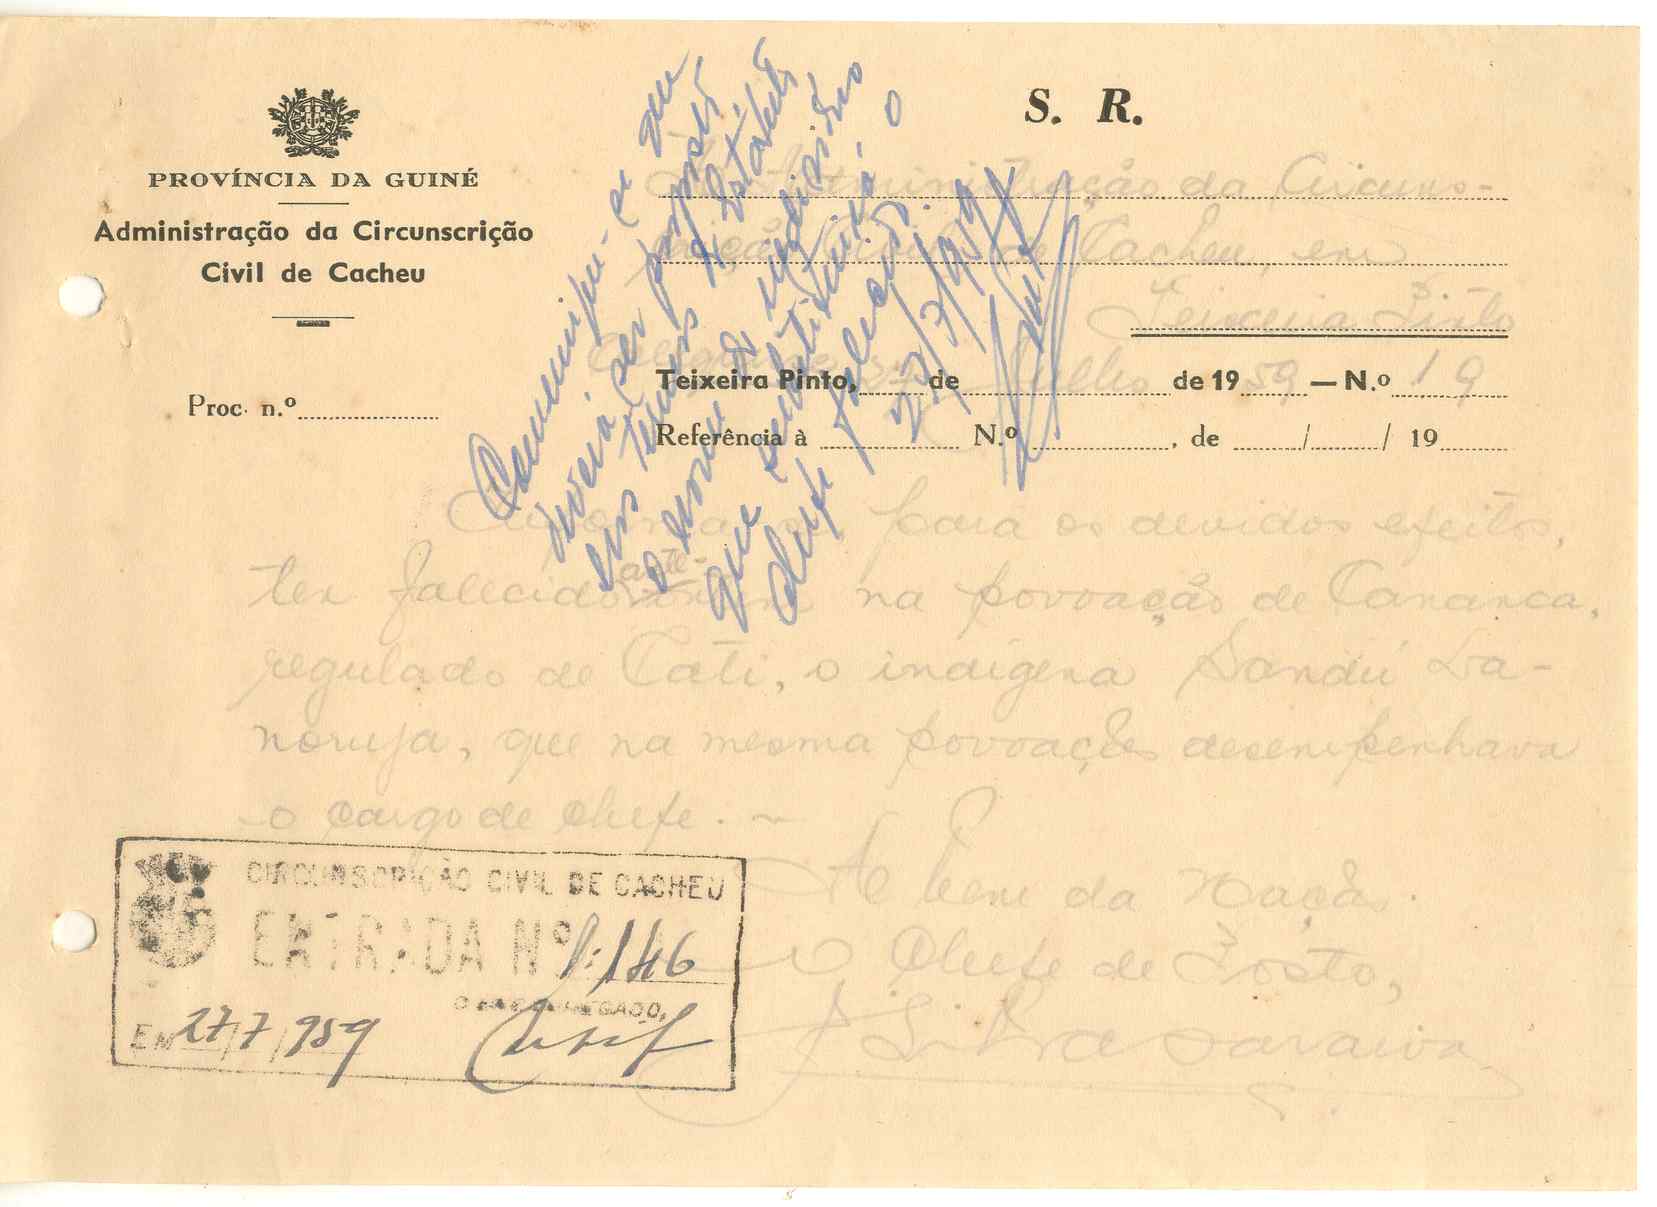 S. R.
PROVÍNCIA DA GUINÉ
Administração da Circunscrição
Civil de Cacheu
À Administração da Circuns-
crição Civil de Cacheu, em
Teixeira Pinto
Teixeira Pinto, 27 de Julho de 1959 — N.º 19
Proc. n.º
Referência à N.º , de / / 19
Comunique-se que
deverá ser
nos termos
o nome do indivíduo
que substituirá o
chefe falecido.
27/7/959
Informa-se, para os devidos efeitos,
ter falecido ante-ontem na povoação de Cananca,
regulado de Cati, o indígena Sandú La-
noruja, que na mesma povoação desempenhava
o cargo de chefe. —
A bem da Nação.
O Chefe de Posto,
Silva Saraiva
CIRCUNSCRIÇÃO CIVIL DE CACHEU
ENTRADA Nº 1:146
O ENCARREGADO,
EM 27/7/959